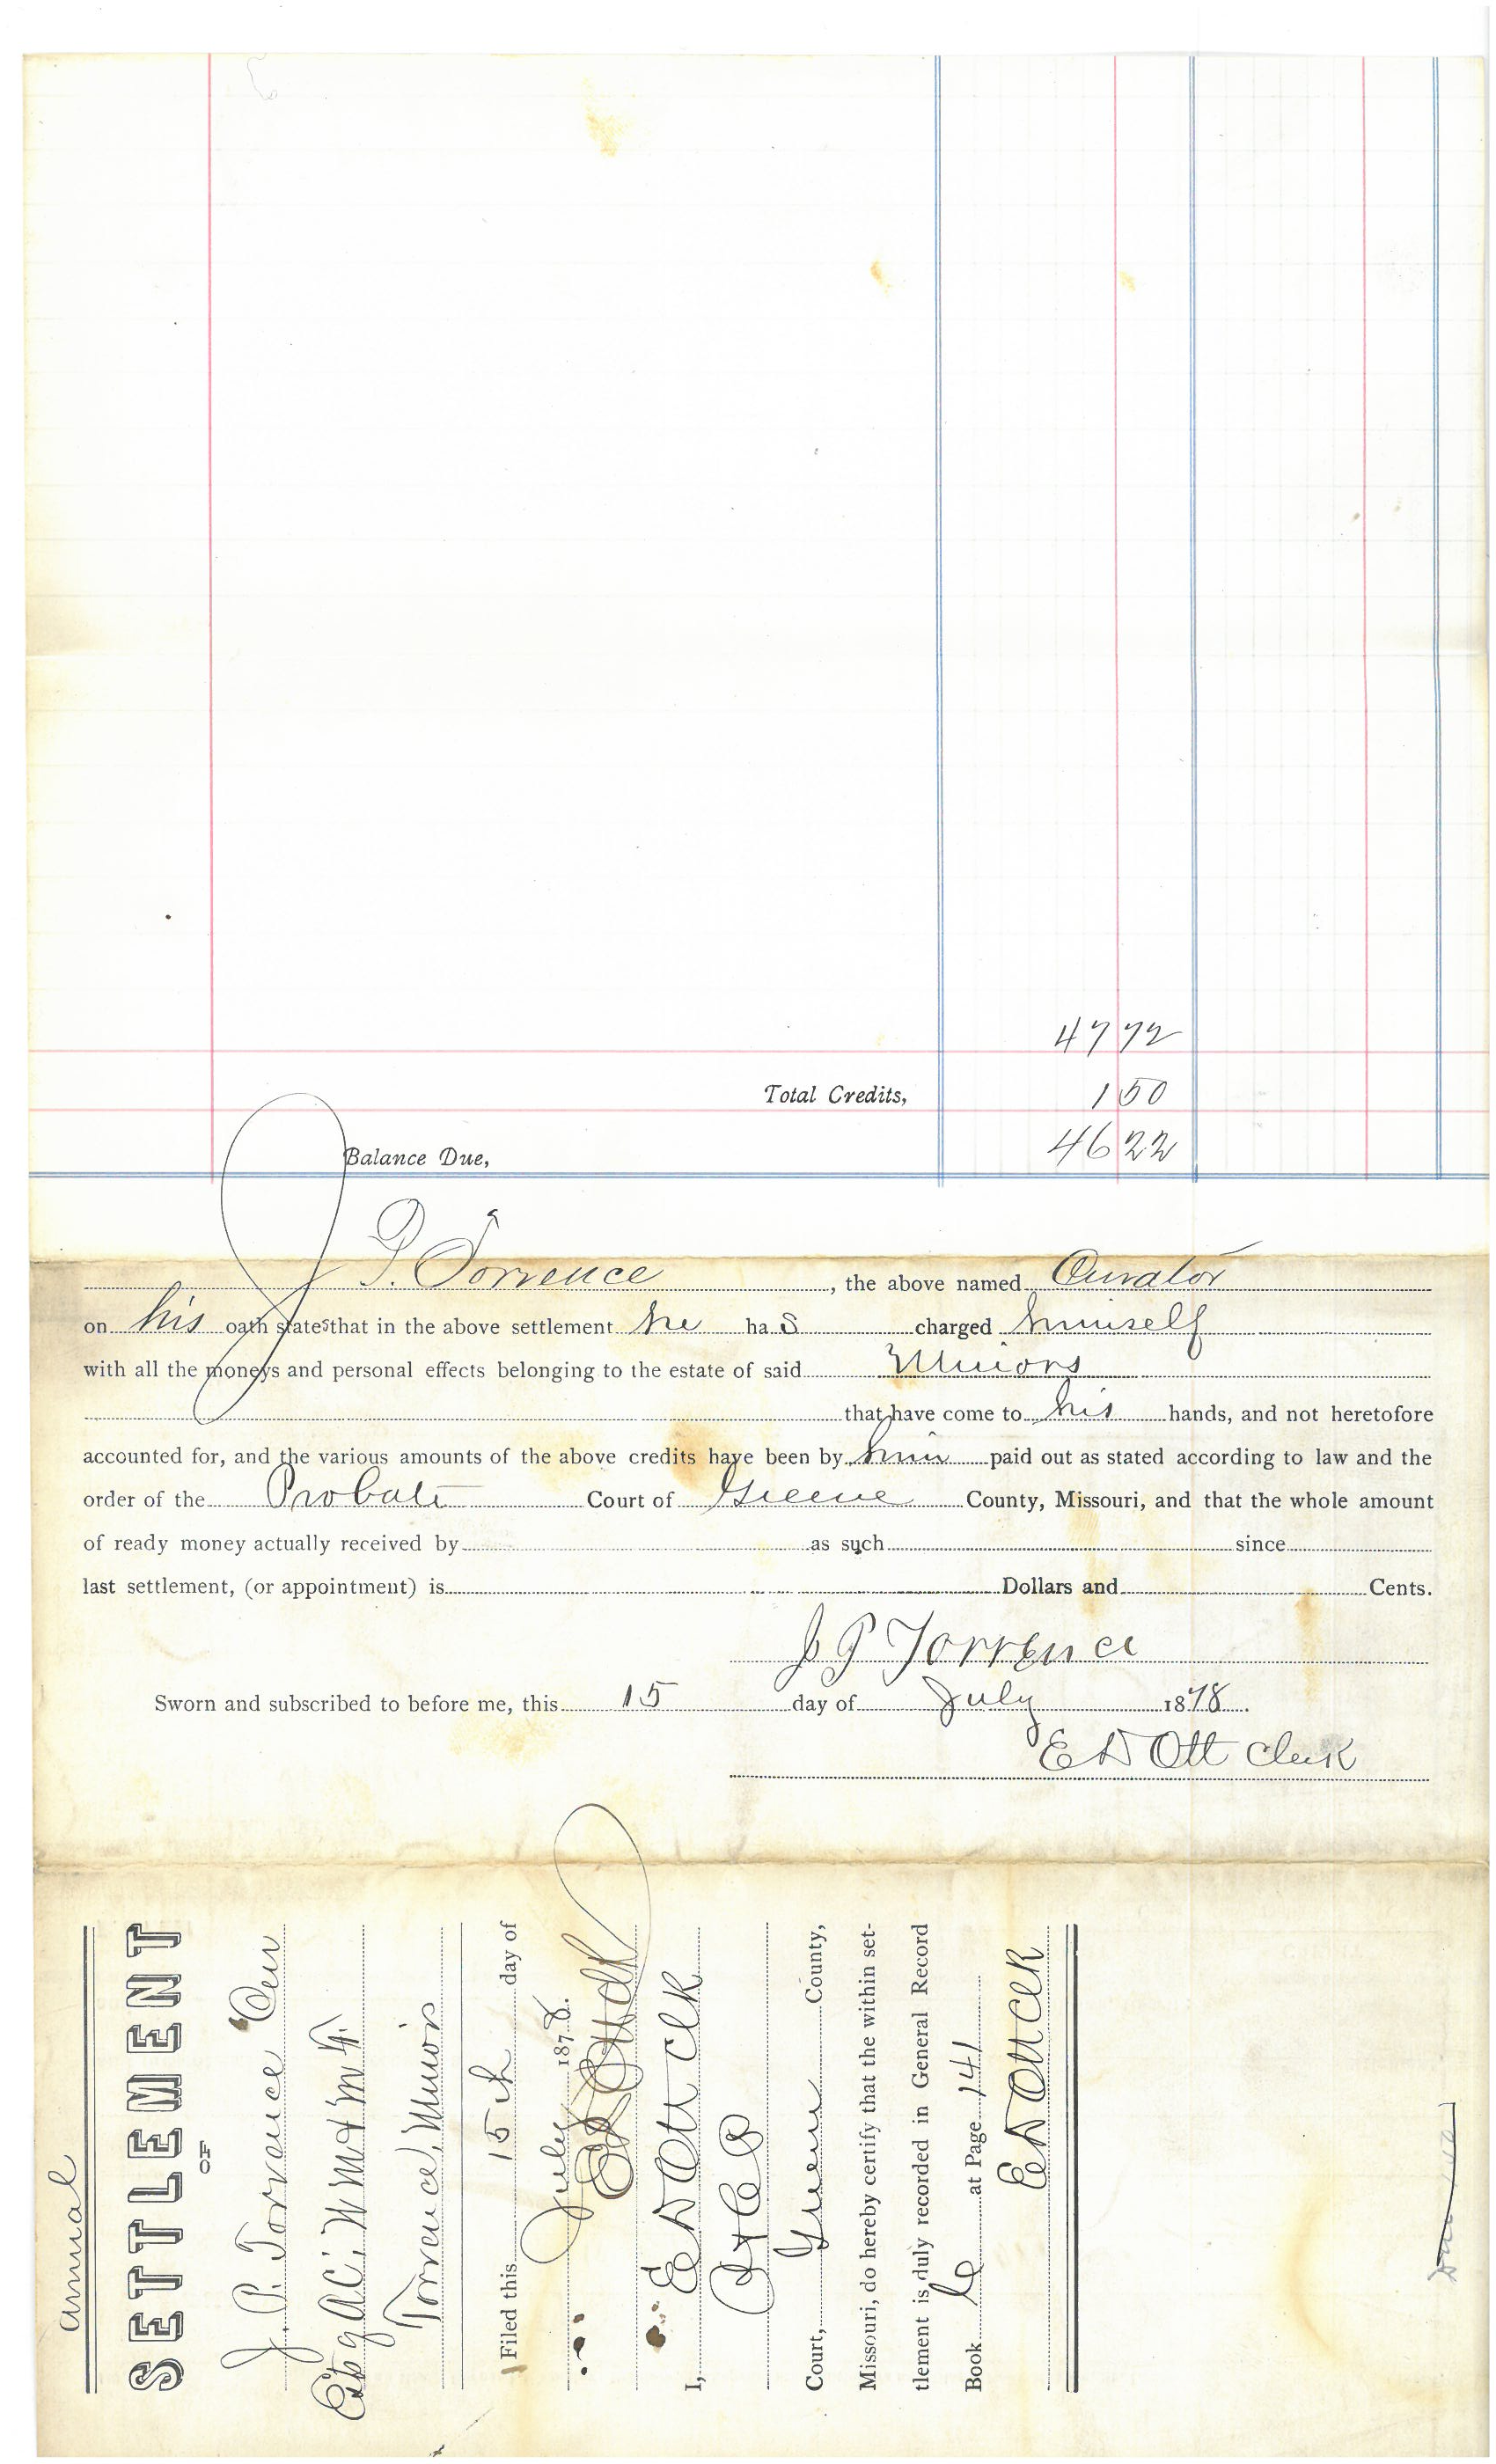 47 72
Total Credits, 1 50
Balance Due, 46 22
J. P. Torrence, the above named Curator
on his oath states that in the above settlement he has charged himself
with all the moneys and personal effects belonging to the estate of said Minors
that have come to his hands, and not heretofore
accounted for, and the various amounts of the above credits have been by him paid out as stated according to law and the
order of the Probate Court of Greene County, Missouri, and that the whole amount
of ready money actually received by as such since
last settlement, (or appointment) is Dollars and Cents.
J P Torrence
Sworn and subscribed to before me, this 15 day of July 1878.
E D Ott Clerk
Annual
SETTLEMENT
OF
J. P. Torrence Cur
Est of A C; W M & M F.
Torrence, Minors
Filed this 15th day of
July 1878.
E D Ott
I, E D Ott Clk
Court, Greene County,
Missouri, do hereby certify that the within set-
tlement is duly recorded in General Record
Book at Page 141
E D Ott Clk